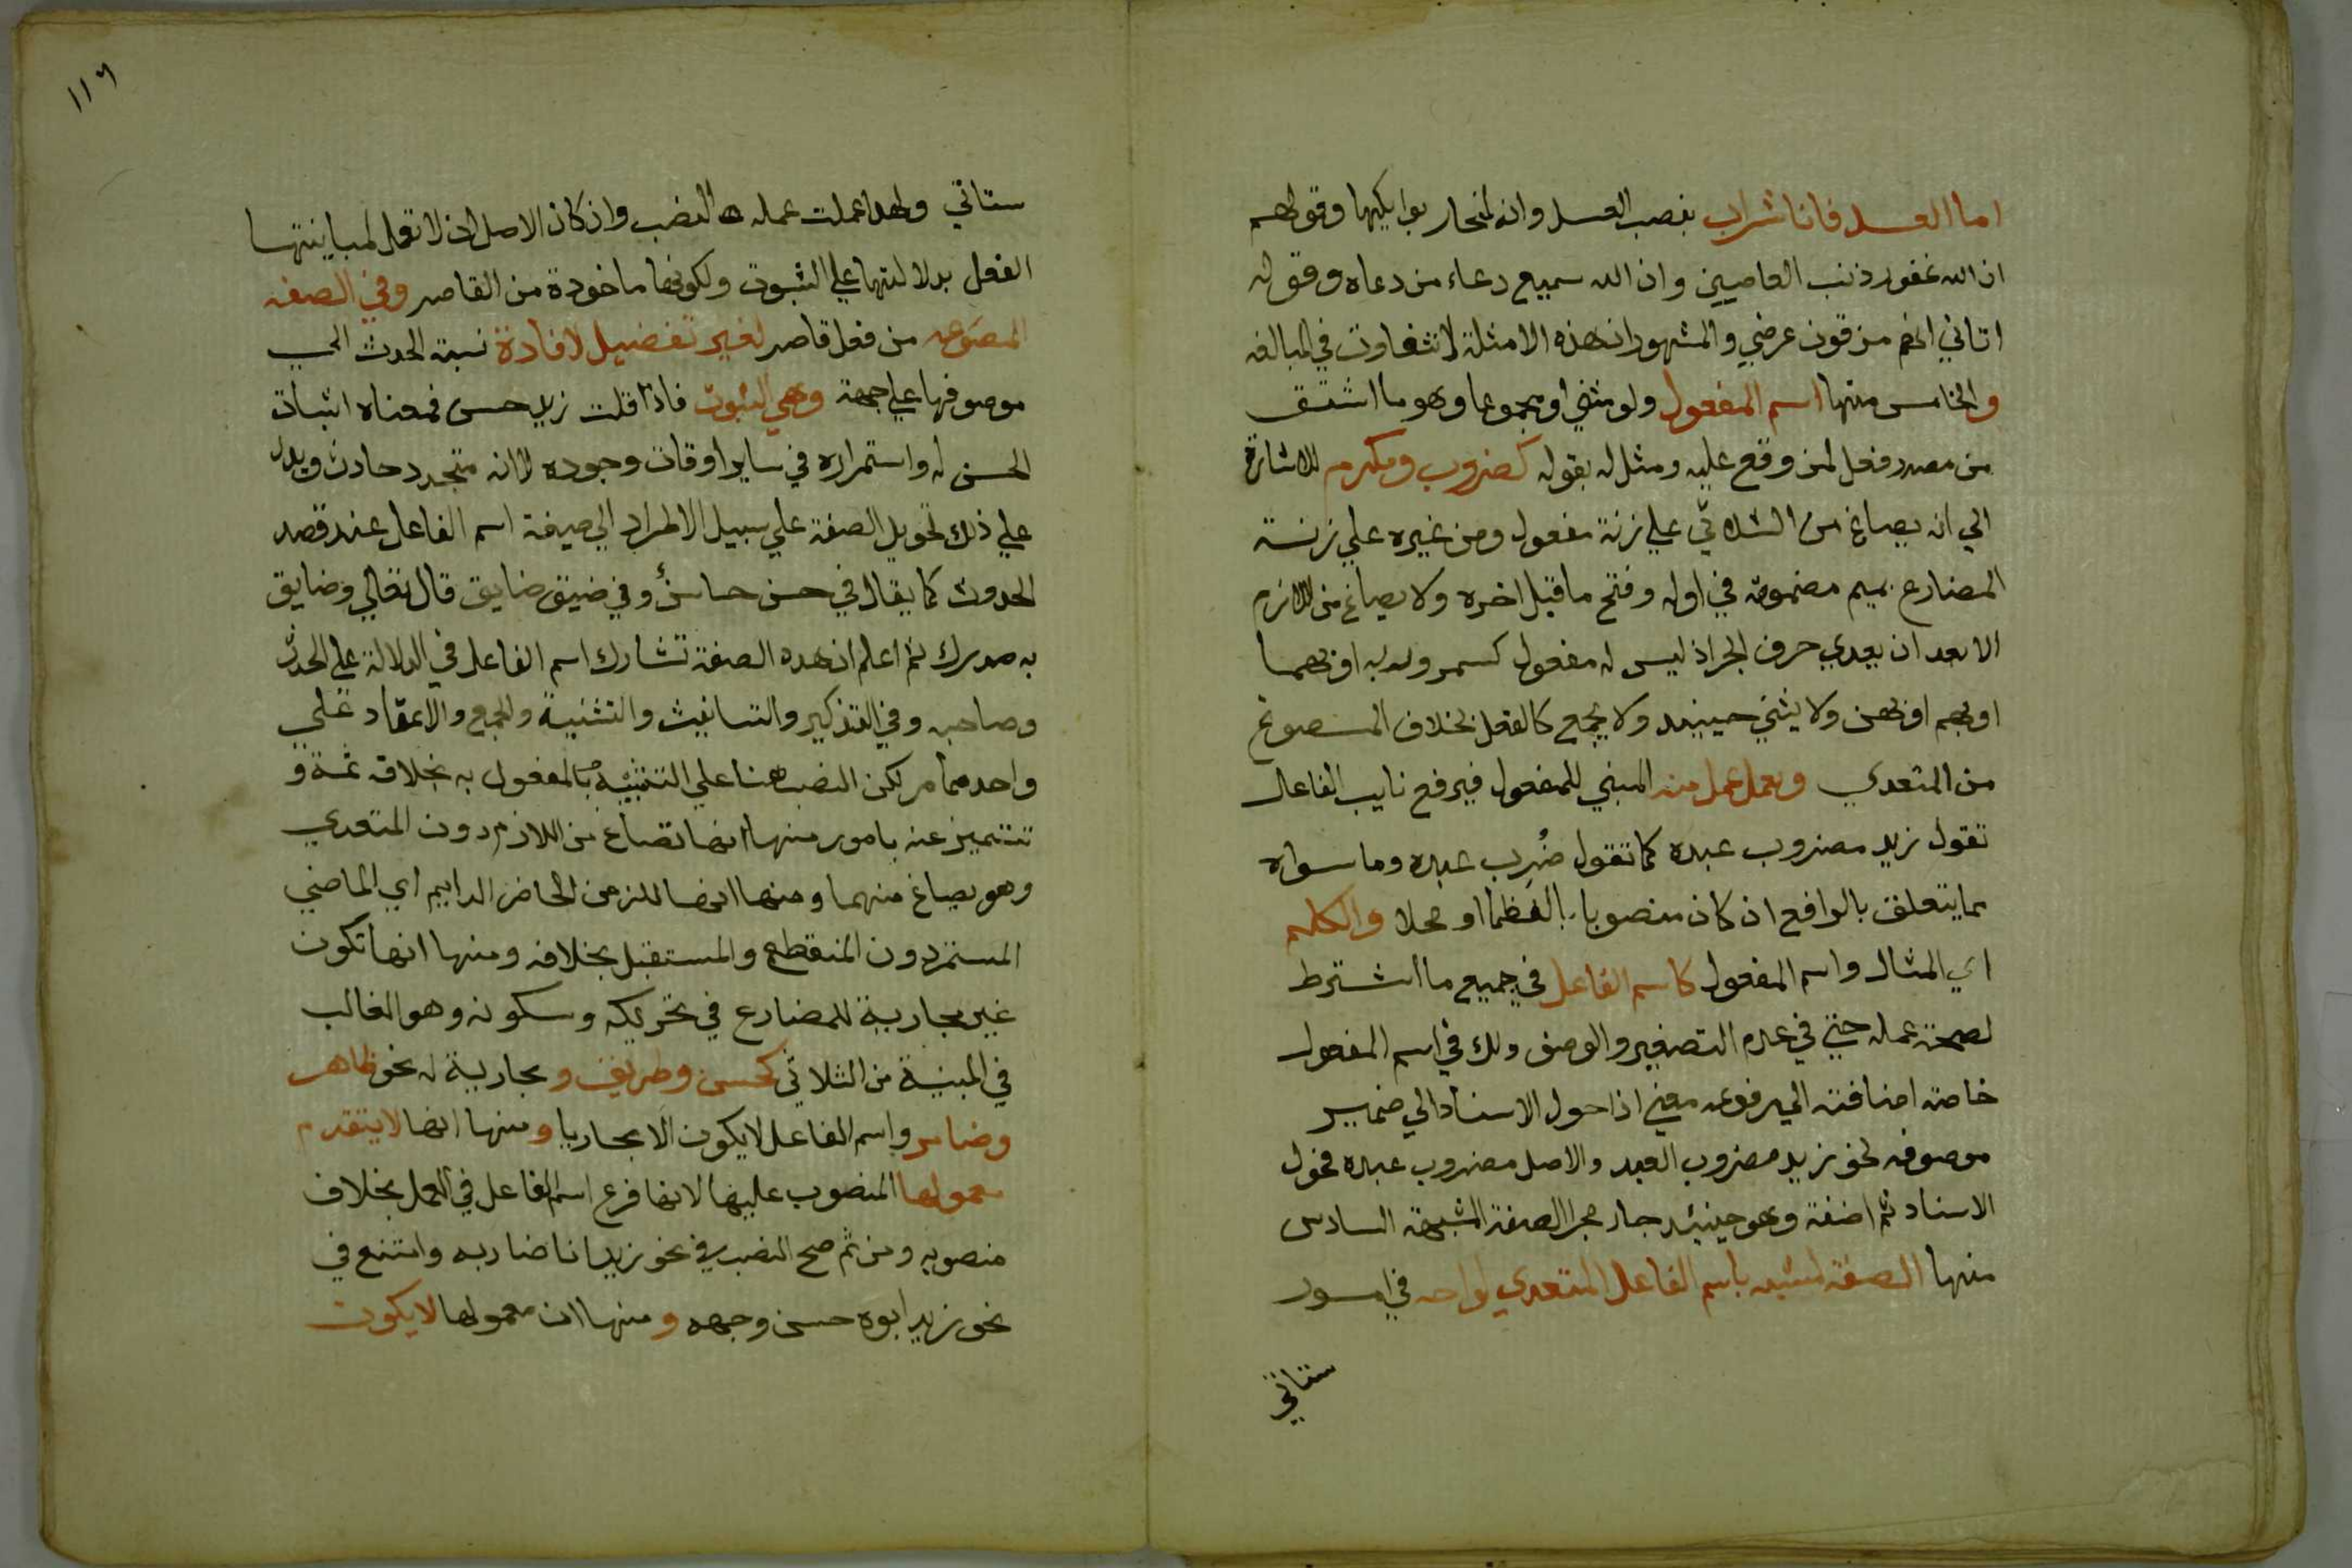 اما العسل فانا شراب بنصب العسل وانه لمنحار بوايكها وقولهم
ان الله غفور ذنب العاصيين وان الله سميع دعاء من دعاه وقوله
اتاني انهم مزقون عرضي والمشهور ان هذه الامثلة لا تتفاوت في المبالغه
والخامس منها اسم المفعول ولو مثني او مجموعا وهو ما اشتق
من مصدر فعل لمن وقع عليه ومثل له بقوله كمضروب ومكرم للاشارة
الي انه يصاغ من الثلاثي علي زنة مفعول ومن غيره علي زنة
المضارع بميم مضمومة في اوله وفتح ما قبل اخره ولا يصاغ من اللازم
الا بعد ان يعدي حرف الجر اذ ليس له مفعول كممرور به او بهما
او بهم او بهن ولا يثني حينيد ولا يجمع كالفعل بخلاف المصوغ
من المتعدي ويعمل عمل فعله المبني للمفعول فيرفع نايب الفاعل
تقول زيد مضروب عبده كما تقول ضُرِب عبده وما سواه
مما يتعلق بالرافع ان كان منصوبا لفظا او محلا والكلم
اي المثال واسم المفعول كاسم الفاعل في جميع ما اشترط
لصحة عمله حتي في عدم التصغير والوصف ولك في اسم المفعول
خاصة اضافته الي مرفوعه معني اذا حول الاسناد الي ضمير
موصوفه نحو زيد مضروب العبد والاصل مضروب عبده فحول
الاسناد ثم اضفة وهو حينيد جار مجرا الصفة المشبهة السادس
منها الصفة المشبهه باسم الفاعل المتعدي لواحد في امور
ستاتي
١١٦
ستاتي ولهذا عملت عمله النصب وان كان الاصل ان لا تعمل لمباينتها
الفعل بدلالتها علي الثبوت ولكونها ماخودة من القاصر وفي الصفه
المصوغه من فعل قاصر لغير تفضيل لافادة نسبة الحدث الي
موصوفها علي جهة وهي الثبوت فاذا قلت زيد حسن فمعناه اثبات
الحسن له واستمراره في ساير اوقات وجوده لا انه متجدد حادث ويدل
علي ذلك تحويل الصفة علي سبيل الاطراد الي صيغة اسم الفاعل عند قصد
الحدوث كما يقال في حسن حاسن وفي ضيق ضايق قال تعالي وضايق
به صدرك ثم اعلم ان هده الصفة تشارك اسم الفاعل في الدلالة علي الحدث
وصاحبه وفي التذكير والتانيث والتثنية والجمع والاعتماد علي
واحد مما مر لكن النصب هنا علي التشبيه بالمفعول به بخلاقه ثمة و
تتميز عنه بامور منها انها تصاغ من اللازم دون المتعدي
وهو يصاغ منهما ومنها انها للزمن الحاضر الدايم اي الماضي
المستمر دون المنقطع والمستقبل بخلافه ومنها انها تكون
غير مجارية للمضارع في تحريكه وسكونه وهو الغالب
في المبنية من الثلاثي كحسن وظريف ومجارية له نحو ظاهر
وضامر واسم الفاعل لا يكون الا مجاريا ومنها انها لا يتقدم
معمولها المنصوب عليها لانها فرع اسم الفاعل في العمل بخلاف
منصوبه ومن ثم صح النصب في نحو زيدا انا ضاربه وامتنع في
نحو زيد ابوه حسن وجهه ومنها ان معمولها لا يكون